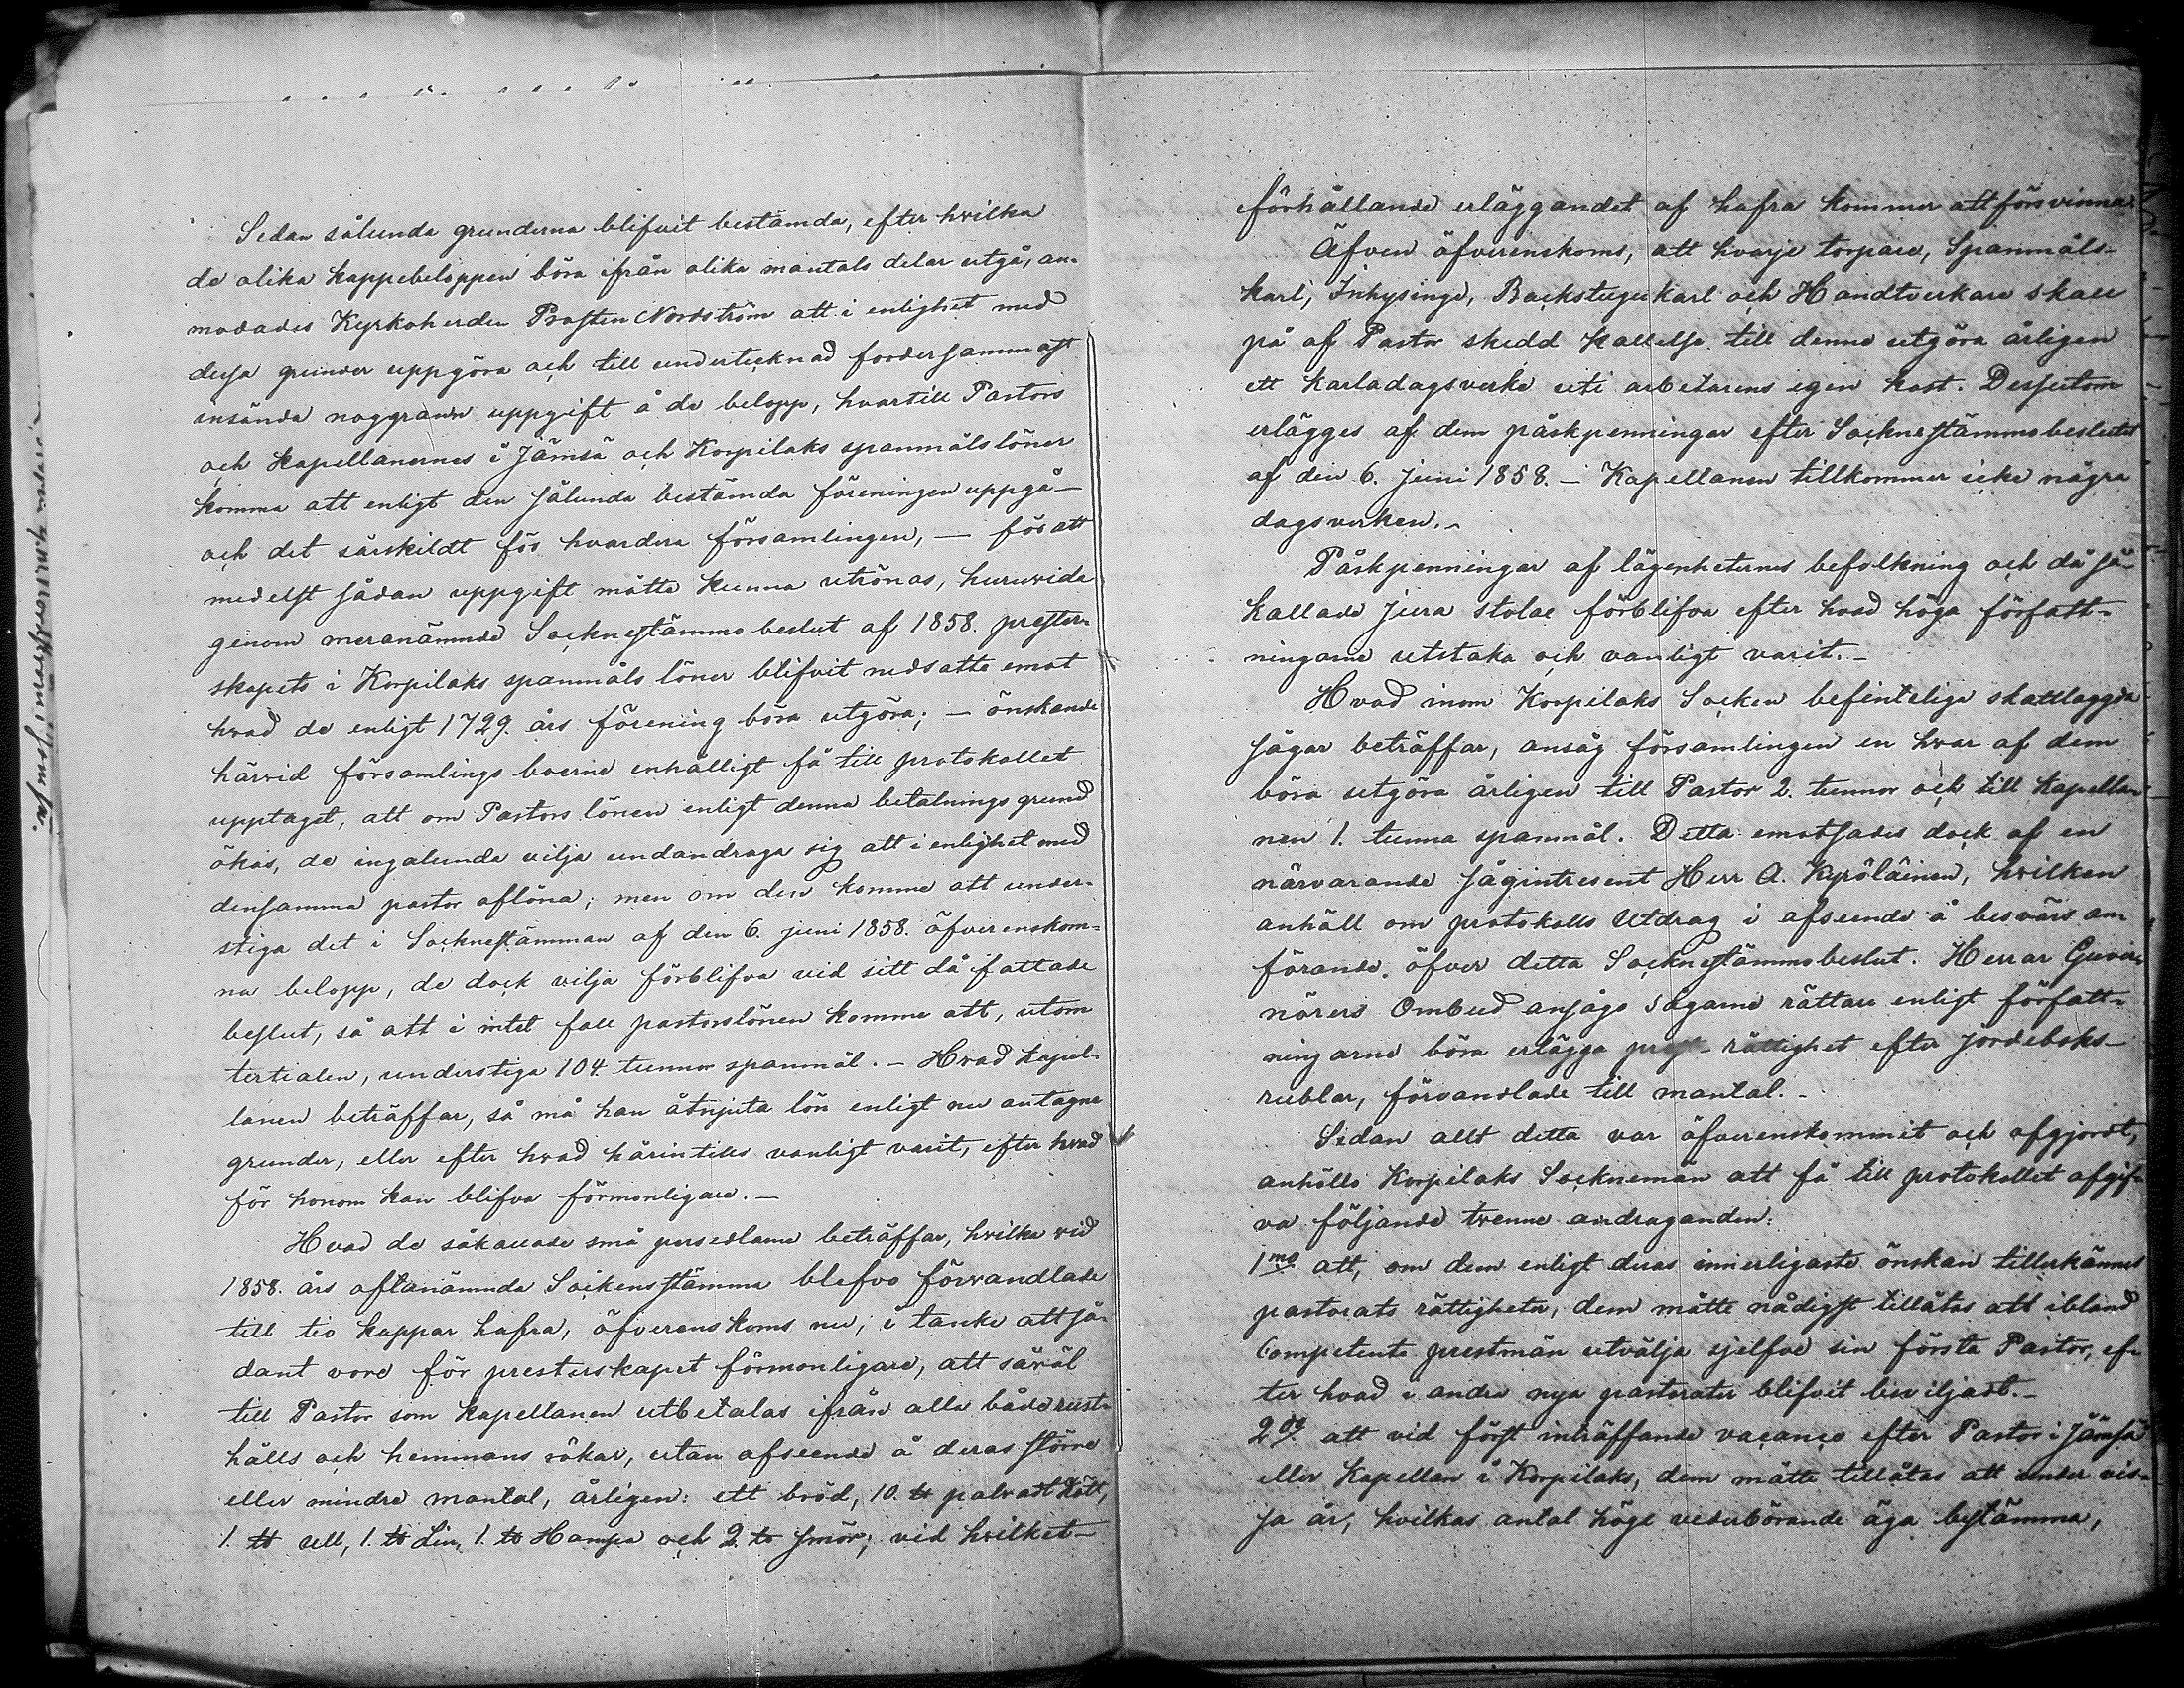 Sedan sålunda grunderna blifvit bestämda, efter hvilka
de olika kappebeloppen böra ifrån olika mantals delar utgå, an-
modades Kyrkoherden Prosten Nordström att i enlighet med
dessa grunder uppgöra och till undertecknad fordersammast
insända noggrann uppgift å de belopp, hvartill Pastors
och Kapellanernes i Jämsä och Korpilaks spanmålslöner
komma att enligt den sålunda bestämda föreningen uppgå —
och det särskildt för hvardera församlingen, — för att
medelst sådan uppgift måtte kunna utrönas, huruvida
genom meranämnde Socknestämmo beslut af 1858. prester-
skapets i Korpilaks spanmåls löner blifvit nedsatte emot
hvad de enligt 1729. års förening böra utgöra; — önskande
härvid församlings boerne enhälligt få till protokollet
upptaget, att om Pastors lönen enligt denna betalnings grund
ökas, de ingalunda vilja undandraga sig att i enlighet med
densamma pastor aflöna; men om den komme att under-
stiga det i Socknestämman af den 6. juni 1858. öfverenskom-
na belopp, de dock vilja förblifva vid sitt då fattade
beslut, så att i intet fall pastorslönen komme att, utom
tertialen, understiga 104 tunnor spanmål. — Hvad kapel-
lanen beträffar, så må han åtnjuta lön enligt nu antagne
grunder, eller efter hvad härintills vanligt varit, efter hvad
för honom kan blifva förmonligare. —
Hvad de såkallade små persedlarne beträffar, hvilka vid
1858. års oftanämnda Sockenstämma blefvo förvandlade
till tio kappar hafra, öfverenskoms nu, i tanke att så-
dant vore för presterskapet förmonligare, att såväl
till Pastor som kapellanen utbetalas ifrån alla både rust-
hålls och hemmans rökar, utan afseende å deras större
eller mindre mantal, årligen: ett bröd, 10. ℔ palvadt kött,
1. ℔ ull, 1. ℔ Lin, 1. ℔ Hampa och 2. ℔ smör; vid hvilket —
förhållande erläggandet af hafra kommer att försvinna.
Äfven öfverenskoms, att hvarje torpare, Spanmåls-
karl, Inhysinge, Backstugukarl och Handtverkare skall
på af Pastor skedd kallelse till denne utgöra årligen
ett karladagsverke uti arbetarens egen kost. Dessutom
erlägges af dem påskpenningar efter Socknestämmobeslutet
af den 6. Juni 1858. — Kapellanen tillkommer icke några
dagsverken. –
Påskpenningar af lägenheternes befolkning och då så-
kallade jura stolae förblifva efter hvad höga författ-
ningarne utstaka och vanligt varit. –
Hvad inom Korpilaks Socken befinteliga skattlaggda
sågar beträffar, ansåg församlingen en hvar af dem
böra utgöra årligen till Pastor 2. tunnor och till Kapella-
nen 1. tunna spanmål. Detta emotsades dock af en
närvarande sågintresent Herr A. Kyröläinen, hvilken
anhåll om protokolls Utdrag i afseende å besvärs an-
förande öfver detta Socknestämmobeslut. Herrar Guver-
nörers Ombud ansågo sågarne rättare enligt författ-
ningarne böra erlägga prest-rättighet efter jordeboks-
rublar, förvandlade till mantal. –
Sedan allt detta var öfverenskommit och afgjordt,
anhöllo Korpilaks Socknemän att få till protokollet afgif-
va följande trenne andraganden:
1mo att, om dem enligt deras innerligaste önskan tillerkännes
pastorats rättigheter, dem måtte nådigst tillåtas att ibland
Competente prestmän utvälja sjelfve sin första Pastor, ef-
ter hvad i andra nya pastorater blifvit beviljadt. –
2do att vid först inträffande vacance efter Pastor i Jämsä
eller Kapellan i Korpilaks, dem måtte tillåtas att under vis-
sa år, hvilkas antal höge vederbörande äga bestämma,